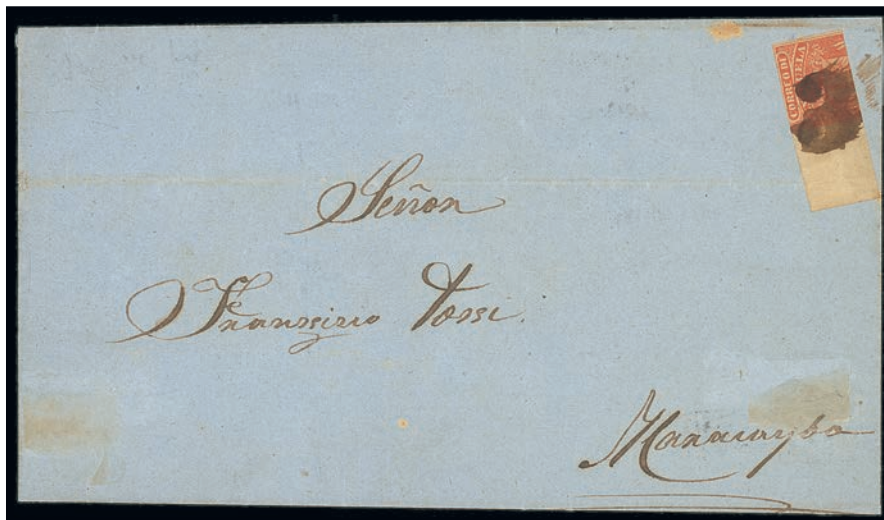 CORREO DE
UELA
Señor
Fransisco Tossi.
Maracaybo